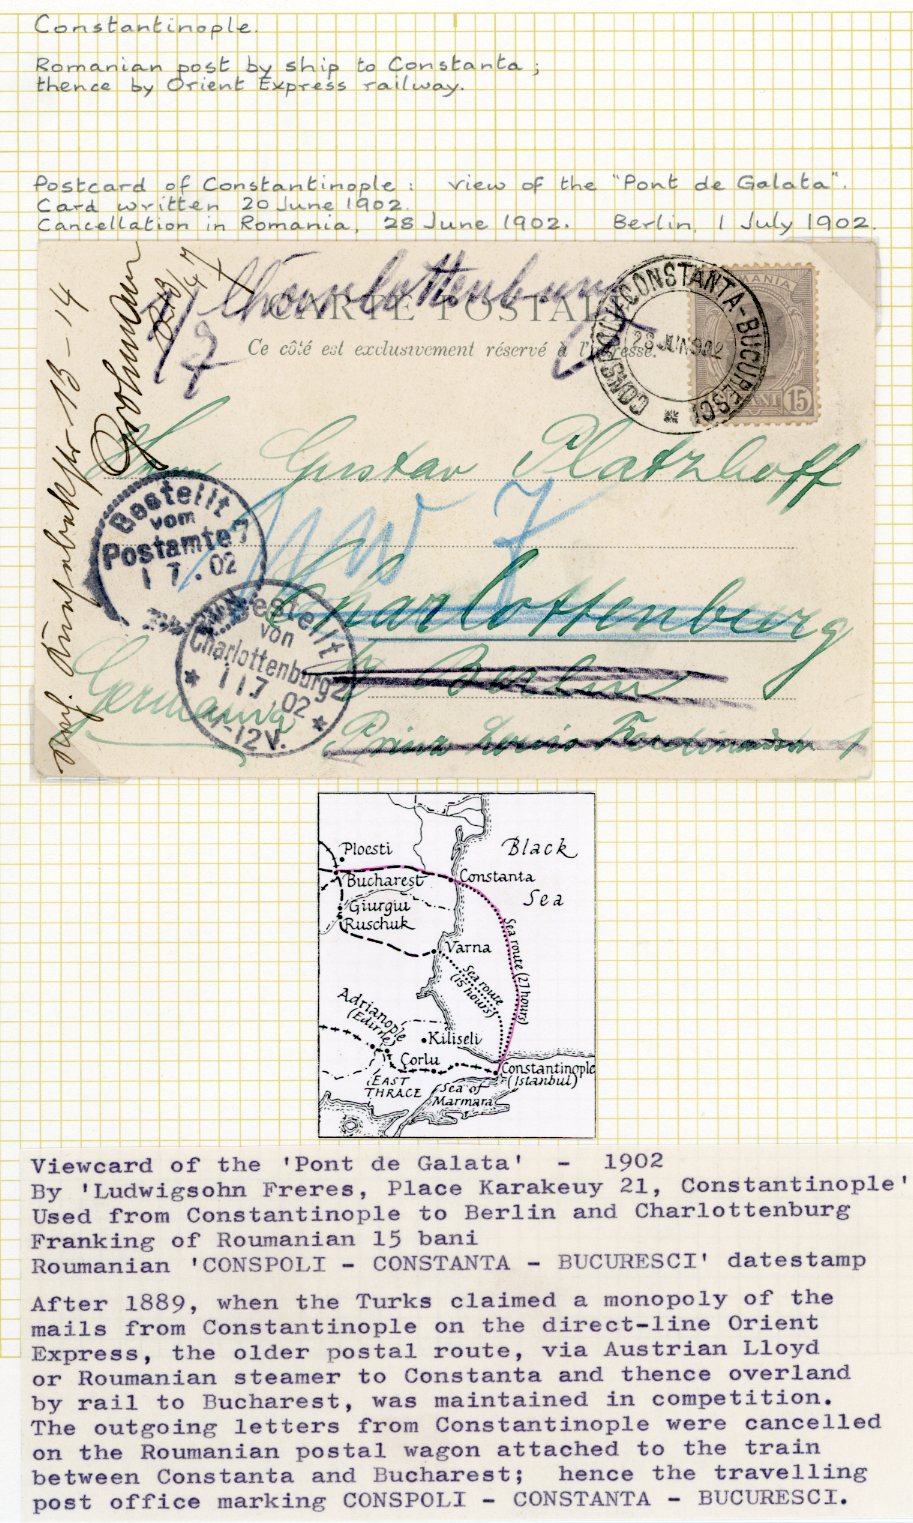 Constantinople.
Romanian post by ship to Constanta;
thence by Orient Express railway.
Postcard of Constantinople: view of the "Pont de Galata".
Card written 20 June 1902.
Cancellation in Romania, 28 June 1902. Berlin, 1 July 1902.
Charlottenburg
CARTE POSTALE
Ce côté est exclusivement réservé à l'adresse.
CONSPOLI-CONSTANTA-BUCURESCI
28 JUN 902
15
Herrn Gustav Platzhoff
NW 7
Bestellt
vom
Postamte 7
1 7. 02
Charlottenburg
Bestellt
von
Charlottenburg 2
1 7. 02
-12V.
Berlin
Germania
Prinz Louis Ferdinandstr 1
Ploesti
Black
Sea
Bucharest
Constanta
Giurgiu
Ruschuk
Varna
Sea route (27 hours)
Sea route
(15 hours)
Adrianople
(Edirne)
Kiliseli
Corlu
Constantinople
(Istanbul)
EAST
THRACE
Sea of
Marmara
Viewcard of the 'Pont de Galata' - 1902
By 'Ludwigsohn Freres, Place Karakeuy 21, Constantinople'
Used from Constantinople to Berlin and Charlottenburg
Franking of Roumanian 15 bani
Roumanian 'CONSPOLI - CONSTANTA - BUCURESCI' datestamp
After 1889, when the Turks claimed a monopoly of the
mails from Constantinople on the direct-line Orient
Express, the older postal route, via Austrian Lloyd
or Roumanian steamer to Constanta and thence overland
by rail to Bucharest, was maintained in competition.
The outgoing letters from Constantinople were cancelled
on the Roumanian postal wagon attached to the train
between Constanta and Bucharest; hence the travelling
post office marking CONSPOLI - CONSTANTA - BUCURESCI.